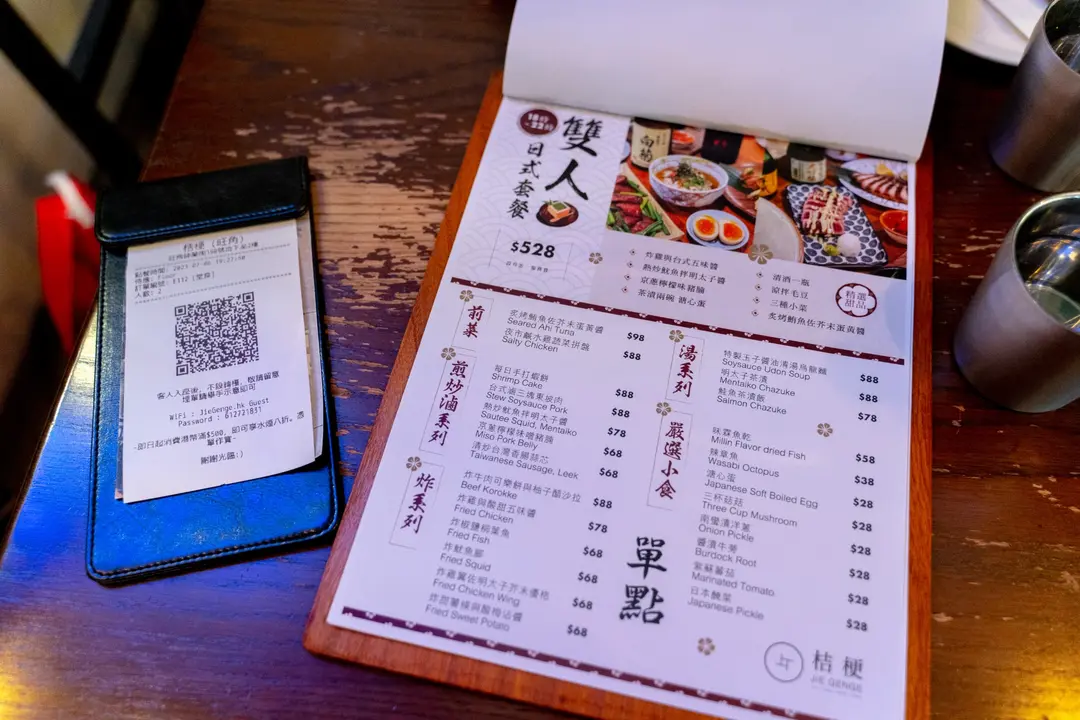 桔梗 (旺角)
人數: 2
客人入座後, 不設轉檯, 敬請留意
埋單請舉手示意即可
WiFi : JieGenge.hk_Guest
Password : 612721831
-即日起消費港幣滿$500, 即可享水煙八折, 憑
單作實-
謝謝光臨:)
雙人
日式套餐
$528
炸雞與台式五味醬
熱炒魷魚拌明太子醬
京蔥檸檬味豬腩
茶漬兩碗 溏心蛋
清酒一瓶
涼拌毛豆
三種小菜
炙烤鮪魚佐芥末蛋黃醬
精選
甜品
前菜
炙烤鮪魚佐芥末蛋黃醬
Seared Ahi Tuna $98
夜市鹹水雞蔬菜拼盤
Salty Chicken $88
煎炒滷系列
每日手打蝦餅
Shrimp Cake $88
台式滷三塊東坡肉
Stew Soysauce Pork $88
熱炒魷魚拌明太子醬
Sautee Squid, Mentaiko $78
京蔥檸檬味噌豬腩
Miso Pork Belly $68
清炒台灣香腸蒜芯
Taiwanese Sausage, Leek $68
炸系列
炸牛肉可樂餅與柚子醋沙拉
Beef Korokke $88
炸雞與酸甜五味醬
Fried Chicken $78
炸椒鹽柳葉魚
Fried Fish $68
炸魷魚鬚
Fried Squid $68
炸雞翼佐明太子芥末優格
Fried Chicken Wing $68
炸甜薯條與酸梅沾醬
Fried Sweet Potato $68
湯系列
特製玉子醬油清湯烏龍麵
Soysauce Udon Soup $88
明太子茶漬
Mentaiko Chazuke $88
鮭魚茶漬飯
Salmon Chazuke $78
嚴選小食
味霖魚乾
Millin Flavor dried Fish $58
辣章魚
Wasabi Octopus $38
溏心蛋
Japanese Soft Boiled Egg $28
三杯菇菇
Three Cup Mushroom $28
南蠻漬洋蔥
Onion Pickle $28
醬漬牛蒡
Burdock Root $28
紫蘇蕃茄
Marinated Tomato $28
日本醃菜
Japanese Pickle $28
單點
桔梗
JIE GENGE